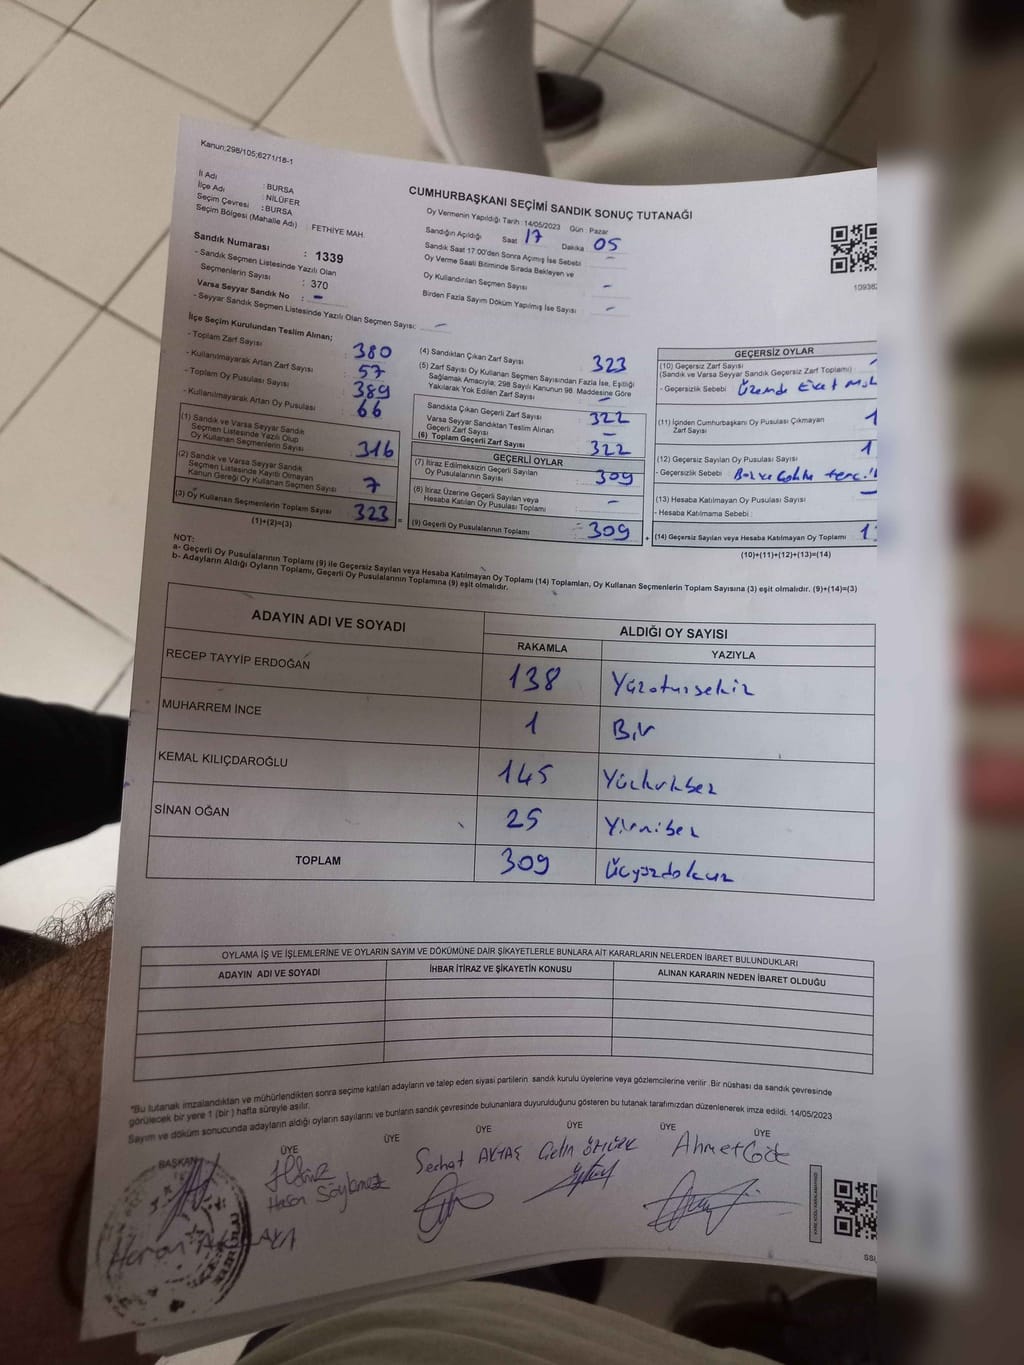 Kanun;298/105;6271/18-1
CUMHURBAŞKANI SEÇİMİ SANDIK SONUÇ TUTANAĞI
İl Adı : BURSA
İlçe Adı : NİLÜFER
Seçim Çevresi : BURSA
Seçim Bölgesi (Mahalle Adı) : FETHİYE MAH.
Sandık Numarası : 1339
- Sandık Seçmen Listesinde Yazılı Olan
Seçmenlerin Sayısı : 370
Varsa Seyyar Sandık No : -
- Seyyar Sandık Seçmen Listesinde Yazılı Olan Seçmen Sayısı: -
Oy Vermenin Yapıldığı Tarih : 14/05/2023 Gün : Pazar
Sandığın Açıldığı Saat 17 Dakika 05
Sandık Saat 17:00'den Sonra Açımış İse Sebebi -
Oy Verme Saati Bitiminde Sırada Bekleyen ve
Oy Kullandırılan Seçmen Sayısı -
Birden Fazla Sayım Döküm Yapılmış İse Sayısı -
İlçe Seçim Kurulundan Teslim Alınan;
- Toplam Zarf Sayısı : 380
- Kullanılmayarak Artan Zarf Sayısı : 57
- Toplam Oy Pusulası Sayısı : 389
- Kullanılmayarak Artan Oy Pusulası : 66
(1) Sandık ve Varsa Seyyar Sandık
Seçmen Listesinde Yazılı Olup
Oy Kullanan Seçmenlerin Sayısı : 316
(2) Sandık ve Varsa Seyyar Sandık
Seçmen Listesinde Kayıtlı Olmayan
Kanun Gereği Oy Kullanan Seçmen Sayısı : 7
(3) Oy Kullanan Seçmenlerin Toplam Sayısı 323 =
(1)+(2)=(3)
(4) Sandıktan Çıkan Zarf Sayısı 323
(5) Zarf Sayısı Oy Kullanan Seçmen Sayısından Fazla İse, Eşitliği
Sağlamak Amacıyla; 298 Sayılı Kanunun 98. Maddesine Göre
Yakılarak Yok Edilen Zarf Sayısı -
Sandıkta Çıkan Geçerli Zarf Sayısı : 322
Varsa Seyyar Sandıktan Teslim Alınan
Geçerli Zarf Sayısı : -
(6) Toplam Geçerli Zarf Sayısı : 322
GEÇERLİ OYLAR
(7) İtiraz Edilmeksizin Geçerli Sayılan
Oy Pusulalarının Sayısı : 309
(8) İtiraz Üzerine Geçerli Sayılan veya
Hesaba Katılan Oy Pusulası Toplamı : -
(9) Geçerli Oy Pusulalarının Toplamı : 309 +
GEÇERSİZ OYLAR
(10) Geçersiz Zarf Sayısı
(Sandık ve Varsa Seyyar Sandık Geçersiz Zarf Toplamı)
- Geçersizlik Sebebi : Üzerinde
(11) İçinden Cumhurbaşkanı Oy Pusulası Çıkmayan
Zarf Sayısı
(12) Geçersiz Sayılan Oy Pusulası Sayısı
- Geçersizlik Sebebi
(13) Hesaba Katılmayan Oy Pusulası Sayısı
- Hesaba Katılmama Sebebi :
(14) Geçersiz Sayılan veya Hesaba Katılmayan Oy Toplamı :
(10)+(11)+(12)+(13)=(14)
NOT:
a- Geçerli Oy Pusulalarının Toplamı (9) ile Geçersiz Sayılan veya Hesaba Katılmayan Oy Toplamı (14) Toplamları, Oy Kullanan Seçmenlerin Toplam Sayısına (3) eşit olmalıdır. (9)+(14)=(3)
b- Adayların Aldığı Oyların Toplamı, Geçerli Oy Pusulalarının Toplamına (9) eşit olmalıdır.
ADAYIN ADI VE SOYADI ALDIĞI OY SAYISI
RAKAMLA YAZIYLA
RECEP TAYYİP ERDOĞAN 138 Yüzotuzsekiz
MUHARREM İNCE 1 Bir
KEMAL KILIÇDAROĞLU 145 Yüzkırkbeş
SİNAN OĞAN 25 Yirmibeş
TOPLAM 309 Üçyüzdokuz
OYLAMA İŞ VE İŞLEMLERİNE VE OYLARIN SAYIM VE DÖKÜMÜNE DAİR ŞİKAYETLERLE BUNLARA AİT KARARLARIN NELERDEN İBARET BULUNDUKLARI
ADAYIN ADI VE SOYADI İHBAR İTİRAZ VE ŞİKAYETİN KONUSU ALINAN KARARIN NEDEN İBARET OLDUĞU
*Bu tutanak imzalandıktan ve mühürlendikten sonra seçime katılan adayların ve talep eden siyasi partilerin sandık kurulu üyelerine veya gözlemcilerine verilir. Bir nüshası da sandık çevresinde
görülecek bir yere 1 (bir) hafta süreyle asılır.
Sayım ve döküm sonucunda adayların aldığı oyların sayılarını ve bunların sandık çevresinde bulunanlara duyurulduğunu gösteren bu tutanak tarafımızdan düzenlenerek imza edildi. 14/05/2023
BAŞKAN ÜYE ÜYE ÜYE ÜYE ÜYE ÜYE
Hasan Söylemez
Serhat AKTAŞ
Ahmet